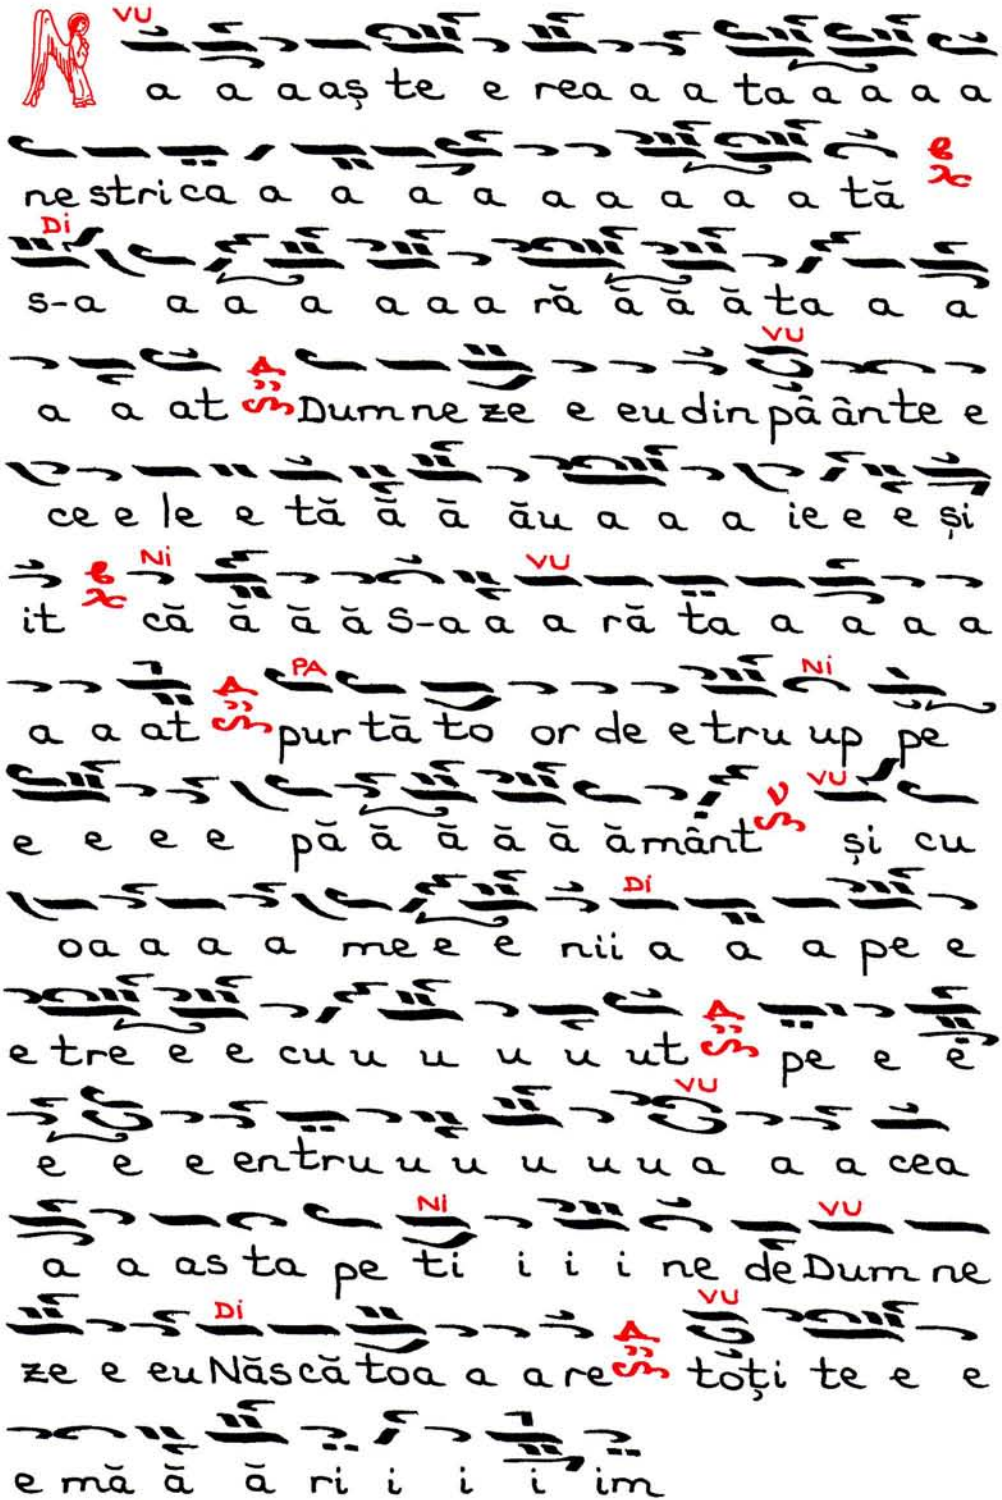 VU
N a a a aș te e rea a a ta a a a a
ne stri ca a a a a a a a a a tă
Di
s-a a a a a a a ră ă ă ă ta a a
VU
a a at Dum ne ze e eu din pâ ân te e
ce e le e tă ă ă ău a a a ie e e și
Ni VU
it că ă ă ă S-a a a ră ta a a a a
PA Ni
a a at pur tă to or de e tru up pe
VU
e e e e pă ă ă ă ă ă mânt și cu
Di
oa a a a me e e nii a a a pe e
e tre e e cu u u u u ut pe e e
VU
e e e en tru u u u u u a a a cea
Ni VU
a a as ta pe ti i i i ne de Dum ne
Di VU
ze e eu Năs că toa a a re toți te e e
e mă ă ă ri i i i im